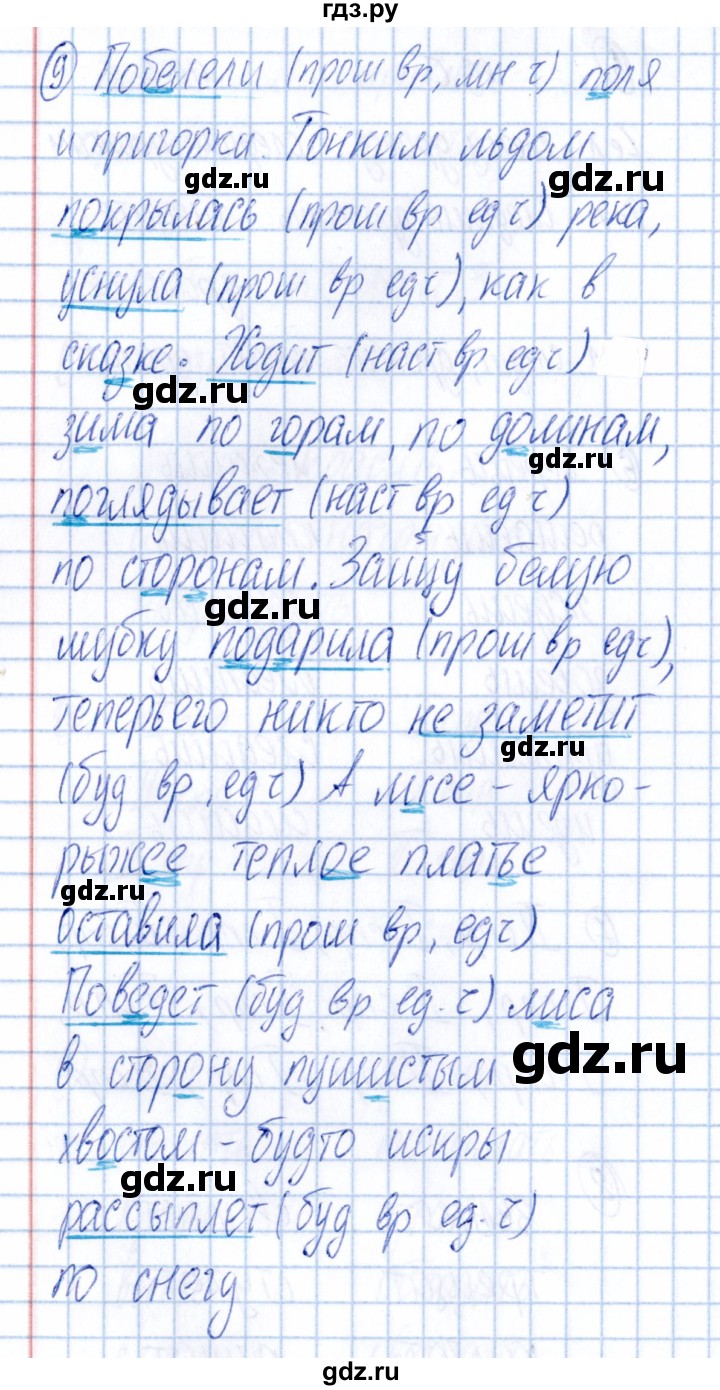 гдз.ру
9 Побелели (прош вр, мн ч) поля
и пригорки. Тонким льдом
gdz.ru gdz.ru
покрылась (прош вр ед ч) река,
уснула (прош вр ед ч), как в
сказке. Ходит (наст вр ед ч)
gdz.ru gdz.ru
зима по горам, по долинам,
поглядывает (наст вр ед ч)
по сторонам. Зайцу белую
gdz.ru
шубку подарила (прош вр ед ч),
теперь его никто не заметит
gdz.ru
(буд вр, ед ч) А лисе - ярко-
рыжее теплое платье
gdz.ru
оставила (прош вр, ед ч)
Поведет (буд вр ед. ч) лиса
в сторону пушистым
gdz.ru
хвостом - будто искры
gdz.ru
рассыплет (буд вр ед. ч)
по снегу
gdz.ru